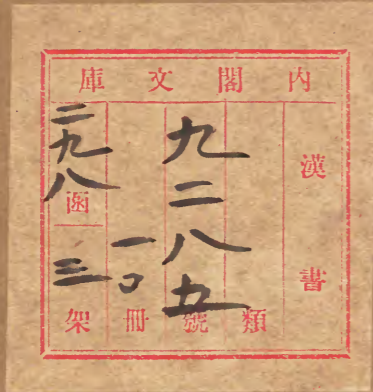 內閣文庫
漢書
類
九二八五號
一〇冊
二九八函
三架